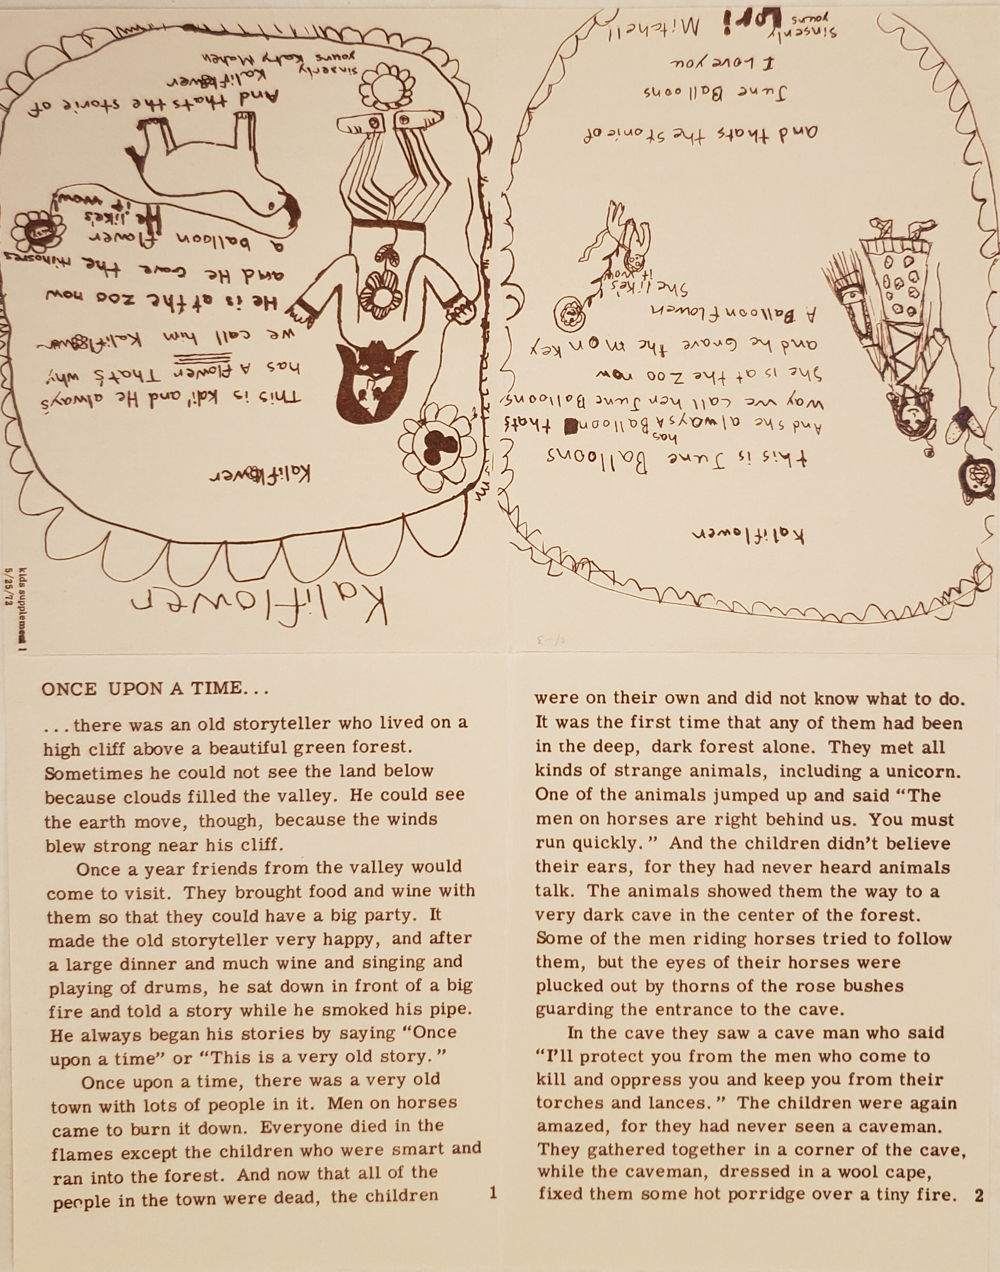 Kaliflower
Kaliflower
This is Kali' and He always
has A flower That's why
we call him Kaliflower
He is at the zoo now
and He Gave the rhinosres
a balloon flower
He like's
it now!
And thats the storie of
Kaliflower
sinserly
yours Katy
kids supplement 1
5/25/72
Kaliflower
this is June Balloons
And she always has A Balloon thats
way we call her June Balloons
She is at the Zoo now
and he Grave the mon key
A Balloon flower
She like's
it now
and thats the storie of
June Balloons
I Love you
sinserly
yours
Lori Mitchell
ONCE UPON A TIME...
...there was an old storyteller who lived on a
high cliff above a beautiful green forest.
Sometimes he could not see the land below
because clouds filled the valley. He could see
the earth move, though, because the winds
blew strong near his cliff.
Once a year friends from the valley would
come to visit. They brought food and wine with
them so that they could have a big party. It
made the old storyteller very happy, and after
a large dinner and much wine and singing and
playing of drums, he sat down in front of a big
fire and told a story while he smoked his pipe.
He always began his stories by saying “Once
upon a time” or “This is a very old story.”
Once upon a time, there was a very old
town with lots of people in it. Men on horses
came to burn it down. Everyone died in the
flames except the children who were smart and
ran into the forest. And now that all of the
people in the town were dead, the children
1
were on their own and did not know what to do.
It was the first time that any of them had been
in the deep, dark forest alone. They met all
kinds of strange animals, including a unicorn.
One of the animals jumped up and said “The
men on horses are right behind us. You must
run quickly.” And the children didn’t believe
their ears, for they had never heard animals
talk. The animals showed them the way to a
very dark cave in the center of the forest.
Some of the men riding horses tried to follow
them, but the eyes of their horses were
plucked out by thorns of the rose bushes
guarding the entrance to the cave.
In the cave they saw a cave man who said
“I’ll protect you from the men who come to
kill and oppress you and keep you from their
torches and lances.” The children were again
amazed, for they had never seen a caveman.
They gathered together in a corner of the cave,
while the caveman, dressed in a wool cape,
fixed them some hot porridge over a tiny fire.
2